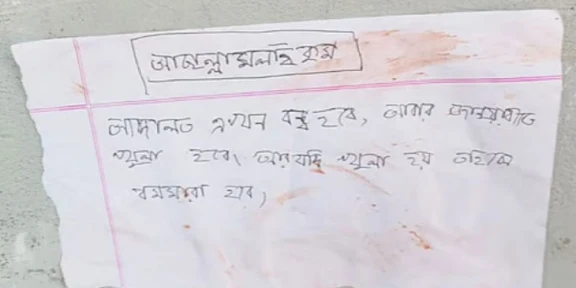 আচ্ছাল্লামলাইকুম
আদালত এখন বন্ধ হবে, আবার জানুয়ারীতে
খুলা হবে। আর যদি খুলা হয় তাহলে
বমমারা হবে,